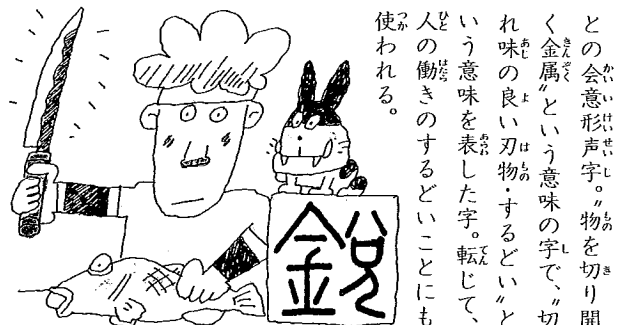 との会意形声字。“物を切り開
く金属”という意味の字で、“切
れ味の良い刃物・するどい”と
いう意味を表した字。転じて、
人の働きのするどいことにも
使われる。
鋭